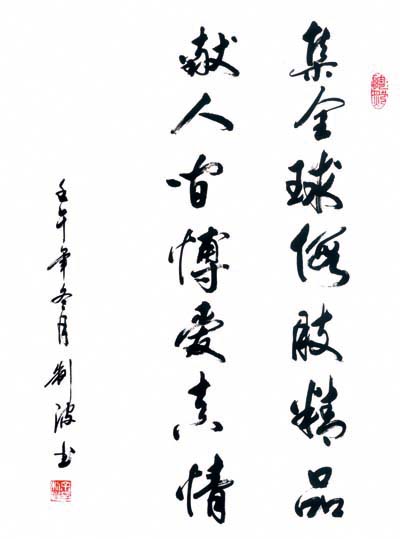 集全球假肢精品
献人间博爱真情
壬午年冬月劉波书